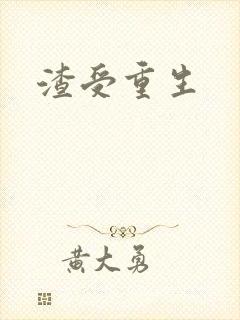 渣受重生
黄大勇